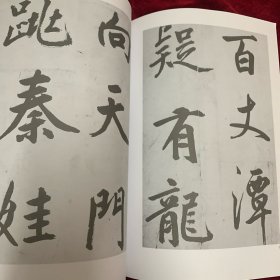 百丈潭
疑有龍
向天門
秦娃